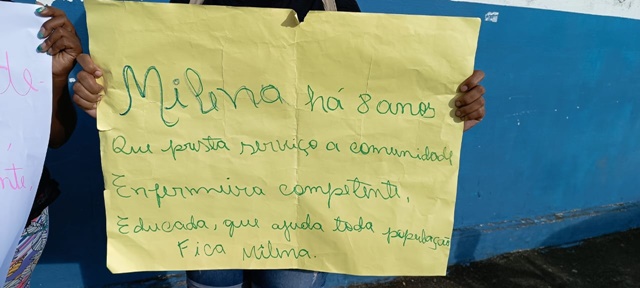 de
nte.
Milena há 8 anos
Que presta serviço a comunidade
Enfermeira competente,
Educada, que ajuda toda população
Fica Milena.